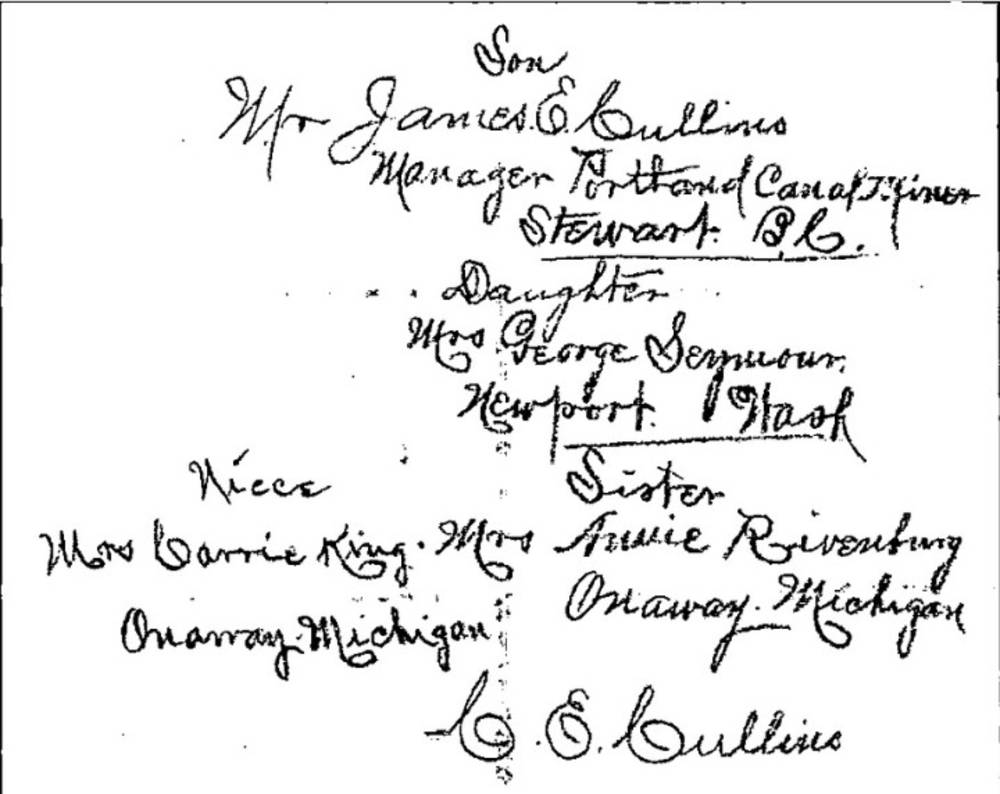 Son
Mr James. E. Cullins
Manager Portland Canal Mines
Stewart. B.C.
Daughter
Mrs George Seymour.
Newport. Wash
Niece
Mrs Carrie King.
Onaway. Michigan
Sister
Mrs Annie Rivenburg
Onaway. Michigan
C. E. Cullins